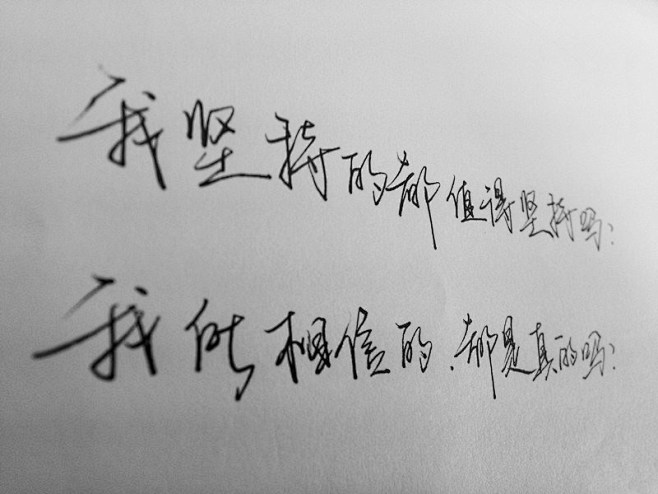 我坚持的都值得坚持吗?
我所相信的.都是真的吗?